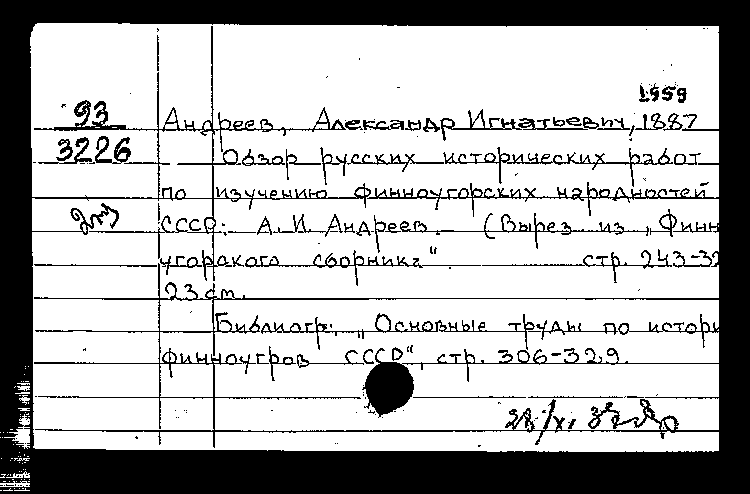 1959
93
Андреев, Александр Игнатьевич, 1887
3226
Обзор русских исторических работ
по изучению финноугорских народностей
СССР: А. И. Андреев. – (Вырез из „Финн
угорского сборника" стр. 243-32
23 cm.
Библиогр: „Основные труды по истори
финноугров СССР", стр. 306-329.